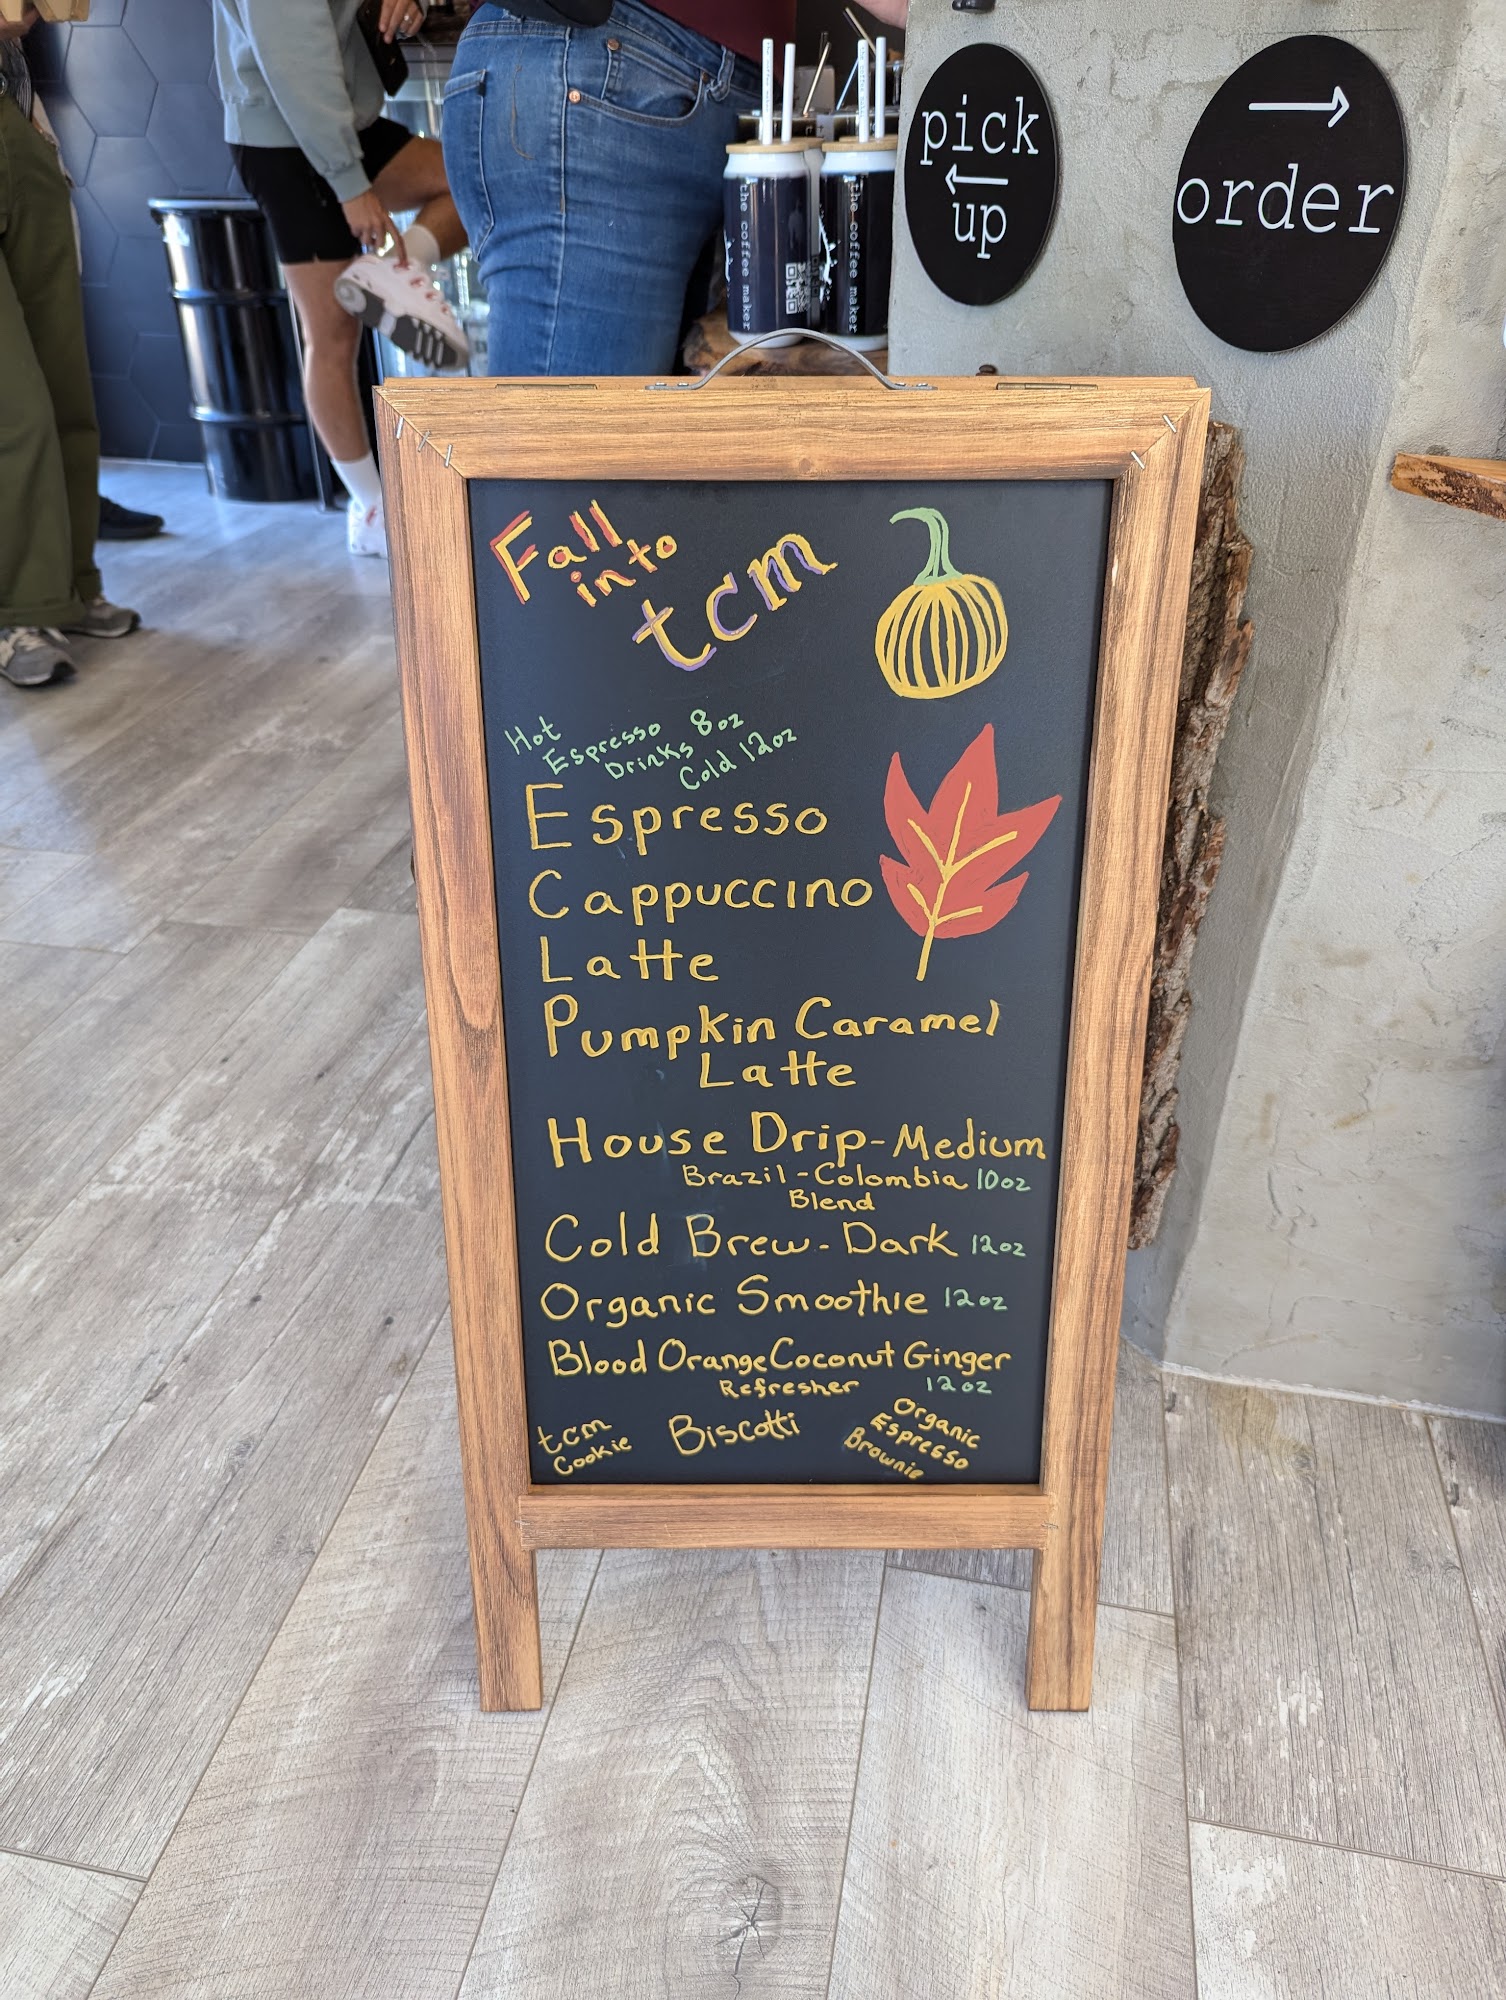 the coffee maker
the coffee maker
pick
up
order
Fall
into
tcm
Hot
Espresso
Drinks 8oz
Cold 12oz
Espresso
Cappuccino
Latte
Pumpkin Caramel
Latte
House Drip-Medium
Brazil-Colombia 10oz
Blend
Cold Brew-Dark 12oz
Organic Smoothie 12oz
Blood Orange Coconut Ginger
Refresher 12oz
tcm
Cookie
Biscotti
Organic
Espresso
Brownie